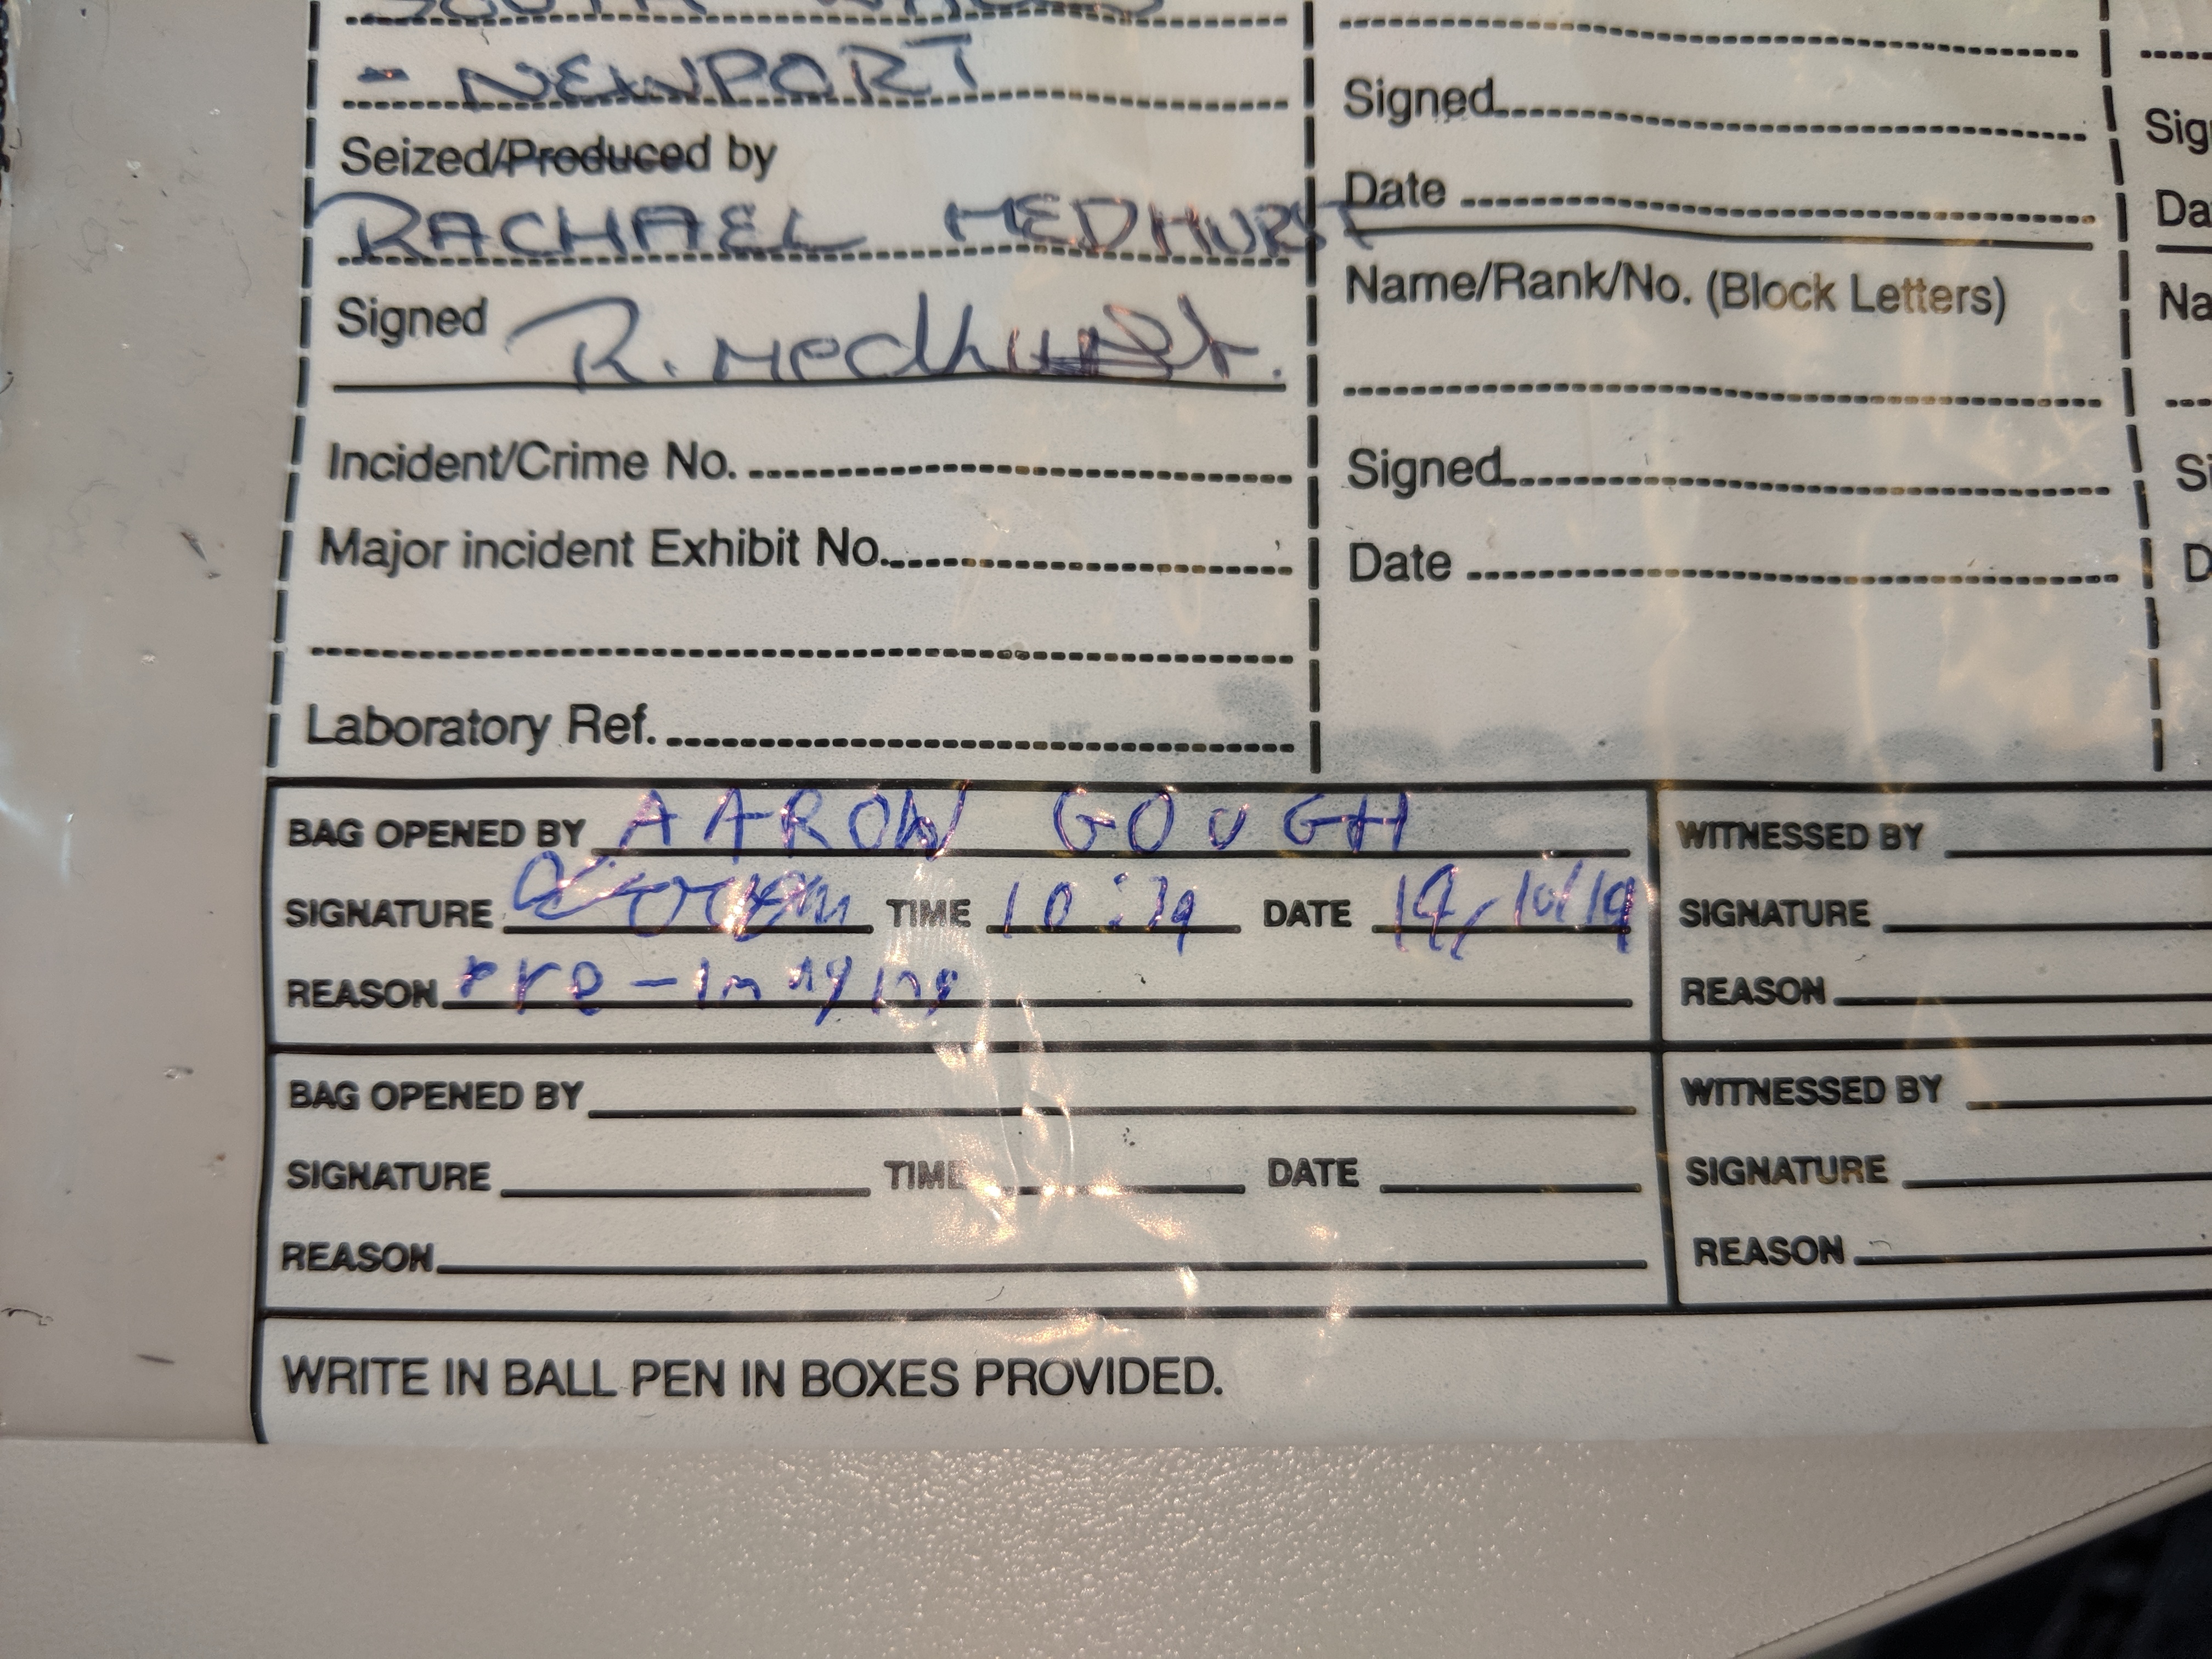 SOUTH WALES
- NEWPORT
Seized/Produced by
RACHAEL MEDHURST
Signed R. Medhurst.
Incident/Crime No.
Major incident Exhibit No.
Laboratory Ref.
Signed
Date
Name/Rank/No. (Block Letters)
Signed
Date
Sig
Da
Na
Si
D
BAG OPENED BY AARON GOUGH
SIGNATURE TIME DATE
REASON Pre-Imaging
WITNESSED BY
SIGNATURE
REASON
BAG OPENED BY
SIGNATURE TIME DATE
REASON
WITNESSED BY
SIGNATURE
REASON
WRITE IN BALL PEN IN BOXES PROVIDED.